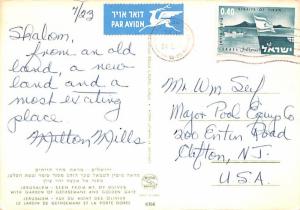 7/23
דואר אויר
PAR AVION
0.40
ISRAEL
ישראל
Shalom,
from an old
land, a new
land and a
most exciting
place.
Milton Mills
Mr Wm Sey
Major Pool Equip Co
200 Entin Road
Clifton, N.J.
U.S.A.
JERUSALEM - SEEN FROM MT. OF OLIVES
WITH GARDEN OF GETHSEMANE AND GOLDEN GATE
JERUSALEM - VUE DU MONT DES OLIVES
LE JARDIN DE GETHSEMANE ET LA PORTE DOREE